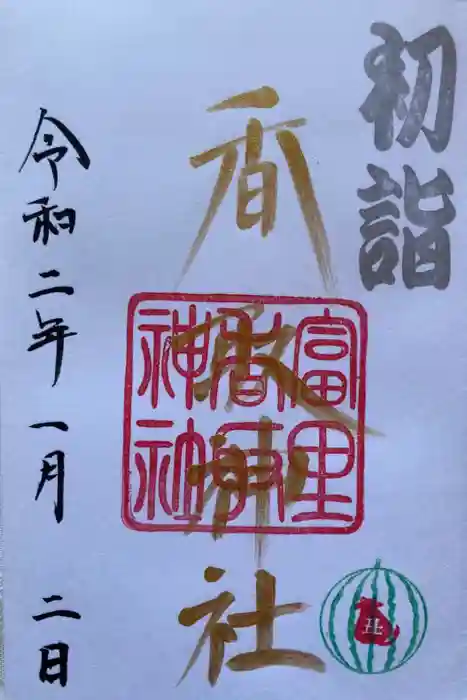 初詣
香取神社
富里
香取
神社
丑
令和二年一月 二日